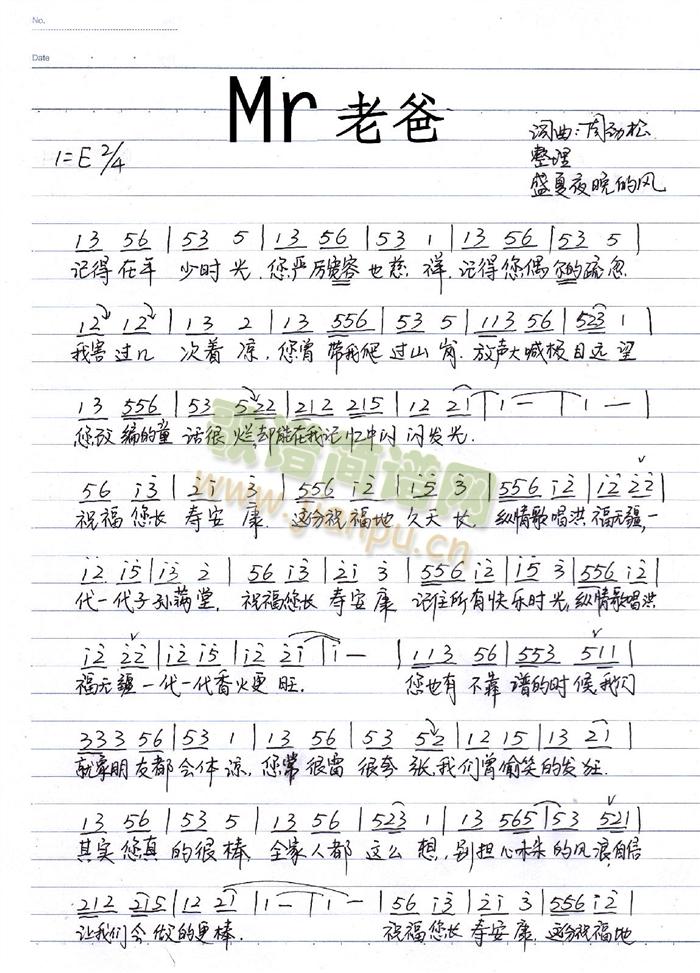 No.
Date
Mr 老爸
词曲:周劲松
1=E 2/4
整理
盛夏夜晚的风
13 56 | 53 5 | 13 56 | 53 1 | 13 56 | 53 5 |
记得在年 少时光.您严厉宽容也慈祥.记得您偶尔的疏忽
12 12 | 13 2 | 13 556 | 53 5 | 113 56 | 523 1 |
我害过几 次着凉,您曾带我爬过山岗.放声大喊极目远望
13 556 | 53 522 | 212 215 | 12 21 | 1 — | 1 — |
您改编的童话很烂,却能在我记忆中闪闪发光.
56 i3 | 2i 3 | 556 i2 | i5 3 | 556 i2 | i2 22 |
祝福您长寿安康.这份祝福地久天长.纵情歌唱洪福无疆,一
i2 i5 | i3 2 | 56 i3 | 2i 3 | 556 i2 | i5 3 | 556 i2 |
代一代子孙满堂.祝福您长寿安康 记住所有快乐时光,纵情歌唱洪
i2 22 | i2 i5 | i2 2i | i — | 113 56 | 553 511 |
福无疆一代一代香火更旺.您也有不靠谱的时候,我们
333 56 | 53 1 | 13 56 | 53 52 | 12 15 | 13 21 |
就象朋友都会体谅,您常很雷很夸张,我们曾偷笑的发狂.
13 56 | 53 5 | 13 56 | 523 1 | 13 565 | 53 521 |
其实您真的很棒 全家人都这么想,别担心未来的风浪,自信
212 215 | 12 21 | 1 — | 1 — | 56 i3 | 2i 3 | 556 i2 |
让我们会做的更棒.祝福您长寿安康.这份祝福地
歌谱简谱网
www.jianpu.cn